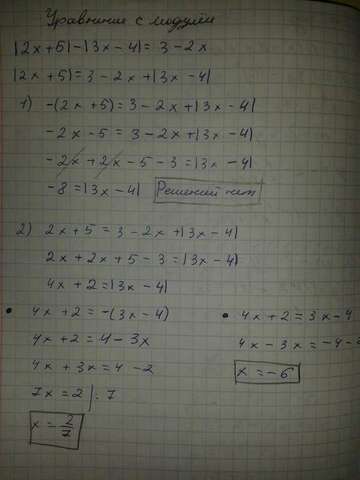 Уравнение с модулем
|2x+5|-|3x-4|=3-2x
|2x+5|=3-2x+|3x-4|
1) -(2x+5)=3-2x+|3x-4|
-2x-5=3-2x+|3x-4|
-2x+2x-5-3=|3x-4|
-8=|3x-4| Решений нет
2) 2x+5=3-2x+|3x-4|
2x+2x+5-3=|3x-4|
4x+2=|3x-4|
• 4x+2=-(3x-4)
4x+2=4-3x
4x+3x=4-2
7x=2 |:7
x=2/7
• 4x+2=3x-4
4x-3x=-4-2
x=-6